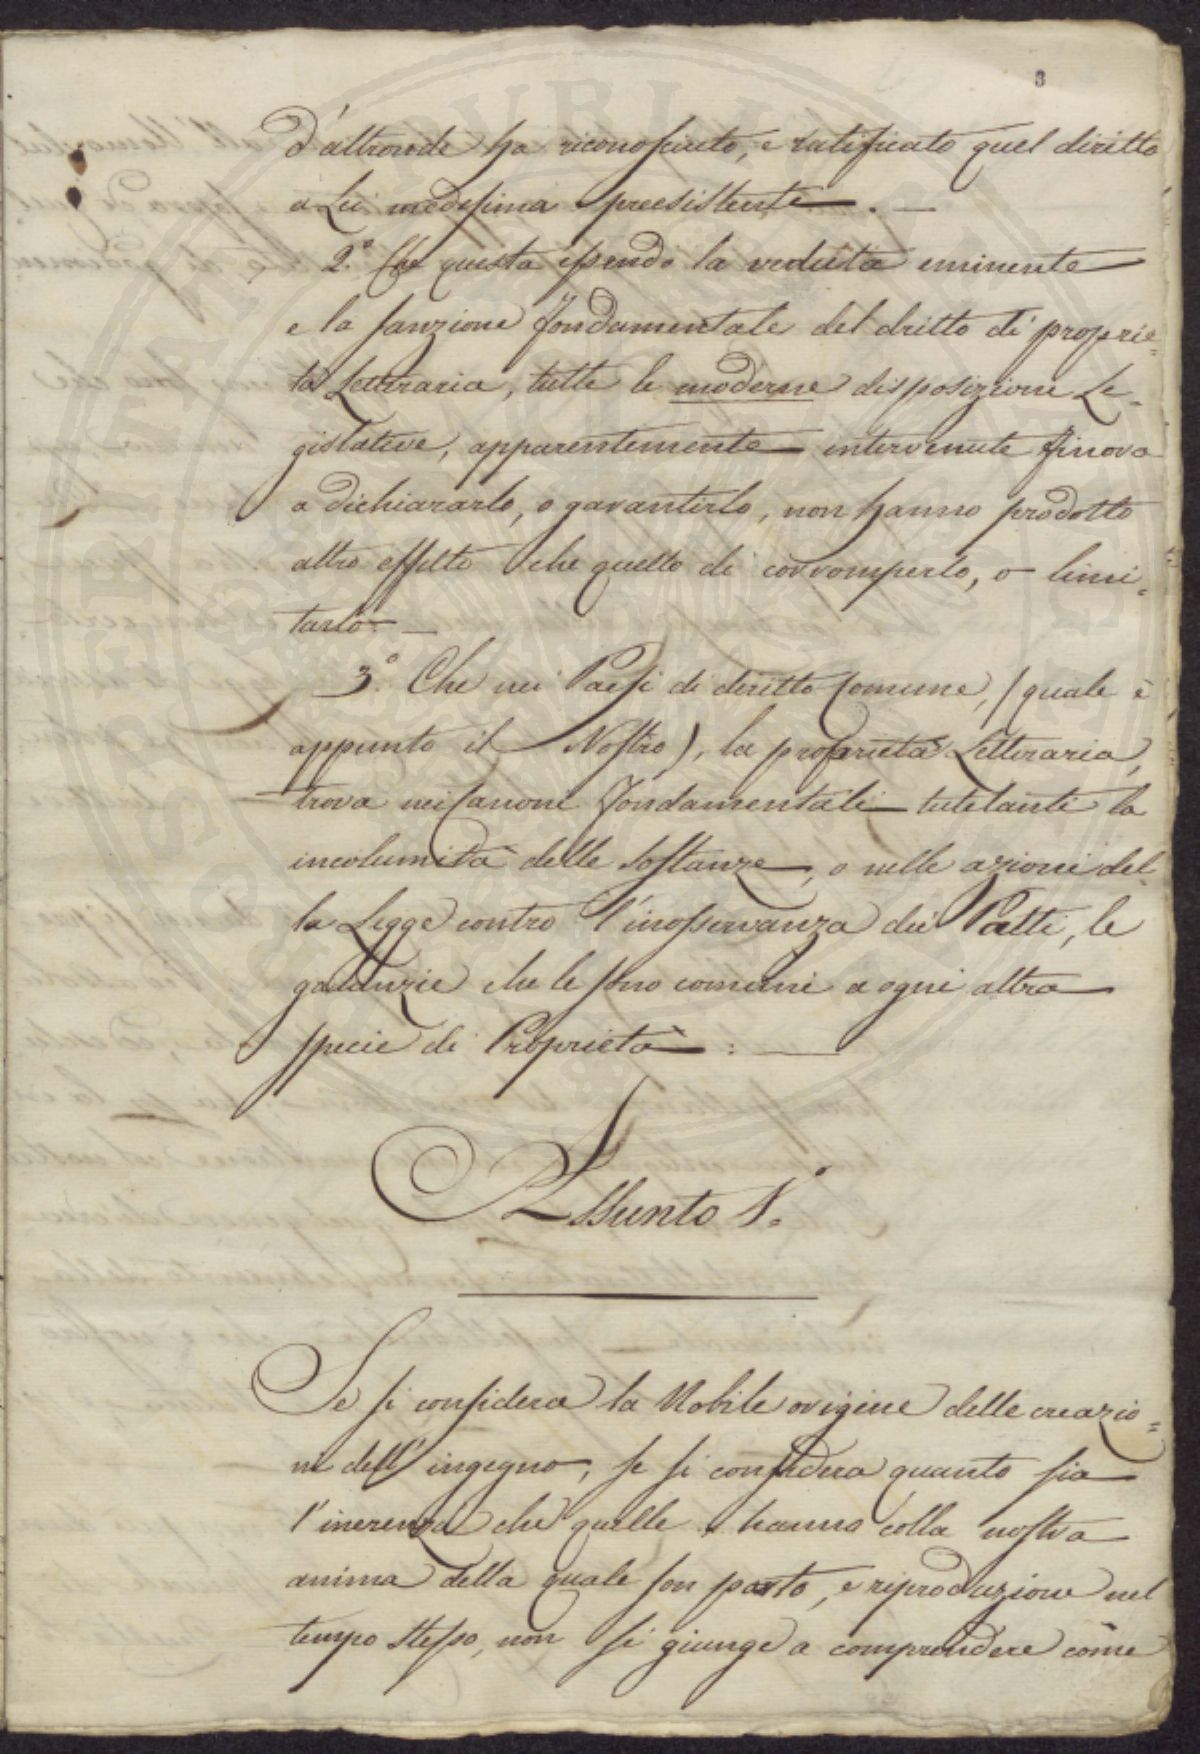 3
d'altronde ha riconosciuto, e ratificato quel diritto
a Lei medesima preesistente. —
2.° Che questa essendo la veduta eminente
e la sanzione fondamentale del dritto di proprie=
tà Letteraria, tutte le moderne disposizioni Le=
gislative, apparentemente intervenute finora
a dichiararlo, o garantirlo, non hanno prodotto
altro effetto che quello di corromperlo, o limi=
tarlo. —
3.° Che nei Paesi di diritto Comune, (quale è
appunto il Nostro), la proprietà Letteraria,
trova nei Canoni fondamentali tutelanti la
incolumità delle sostanze, o nelle azioni del=
la Legge contro l'inosservanza dei Patti, le
garanzie che le sono comuni a ogni altra
specie di Proprietà: —
Assunto 1.°
Se si considera la Nobile origine delle creazio=
ni dell'ingegno, se si considera quanto sia
l'inerenza che quelle hanno colla nostra
anima della quale son parto, e riproduzione nel
tempo stesso, non si giunge a comprendere come